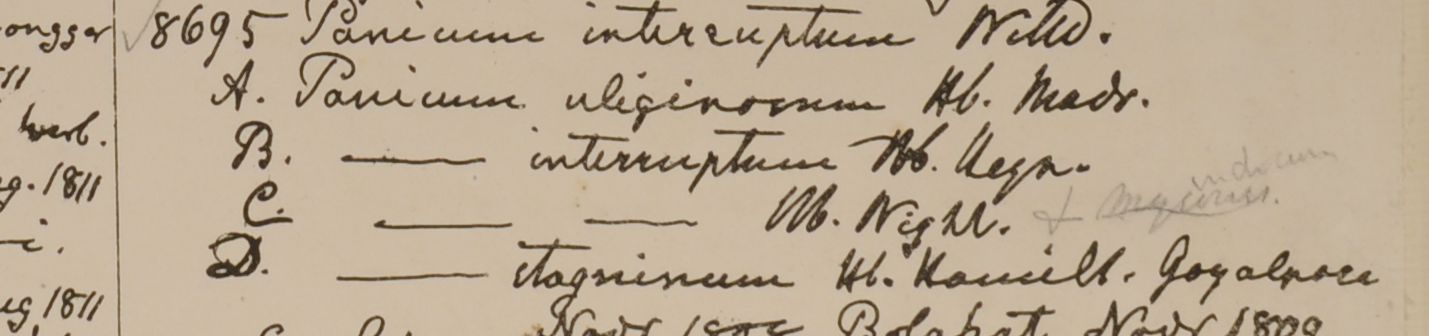 ongger
11
herb.
g. 1811
i.
ug 1811
8695 Panicum interruptum Willd.
A. Panicum uliginosum Hb. Madr.
B. —— interruptum Hb. Heyn.
C. —— —— Hb. Wight.
+ myurus. indicum
D. —— stagninum Hb. Hamilt. Goyalpara
Novr Novr 1809